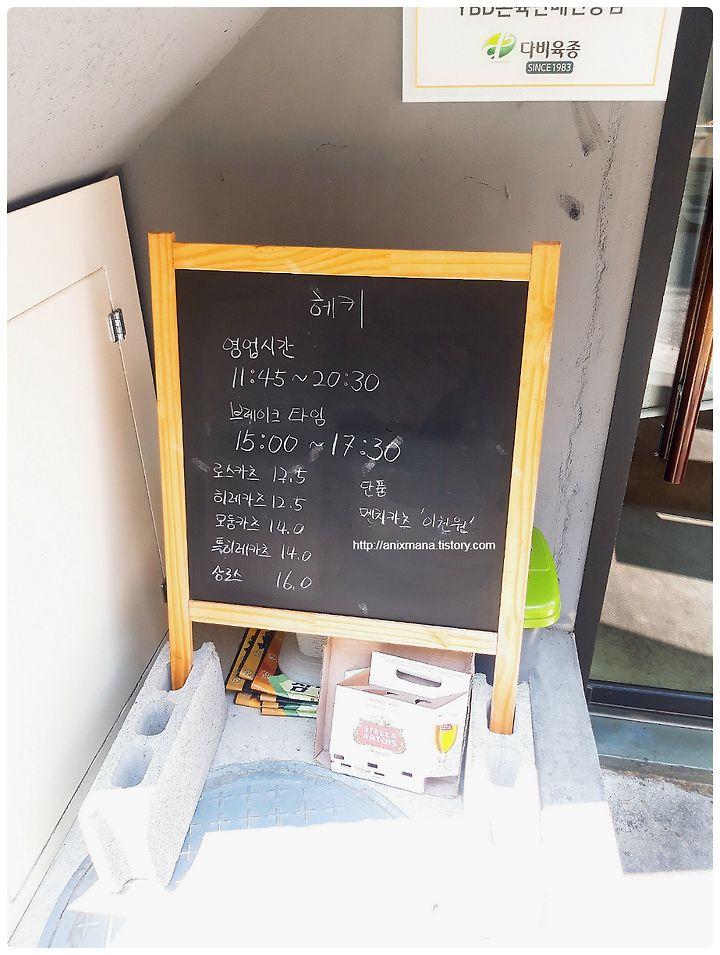 다비육종
SINCE1983
헤키
영업시간
11:45 ~ 20:30
브레이크 타임
15:00 ~ 17:30
로스카츠 12.5
히레카츠 12.5
모둠카츠 14.0
특히레카츠 14.0
상로스 16.0
단품
멘치카츠 '이천원'
http://anixmana.tistory.com
STELLA
ARTOIS